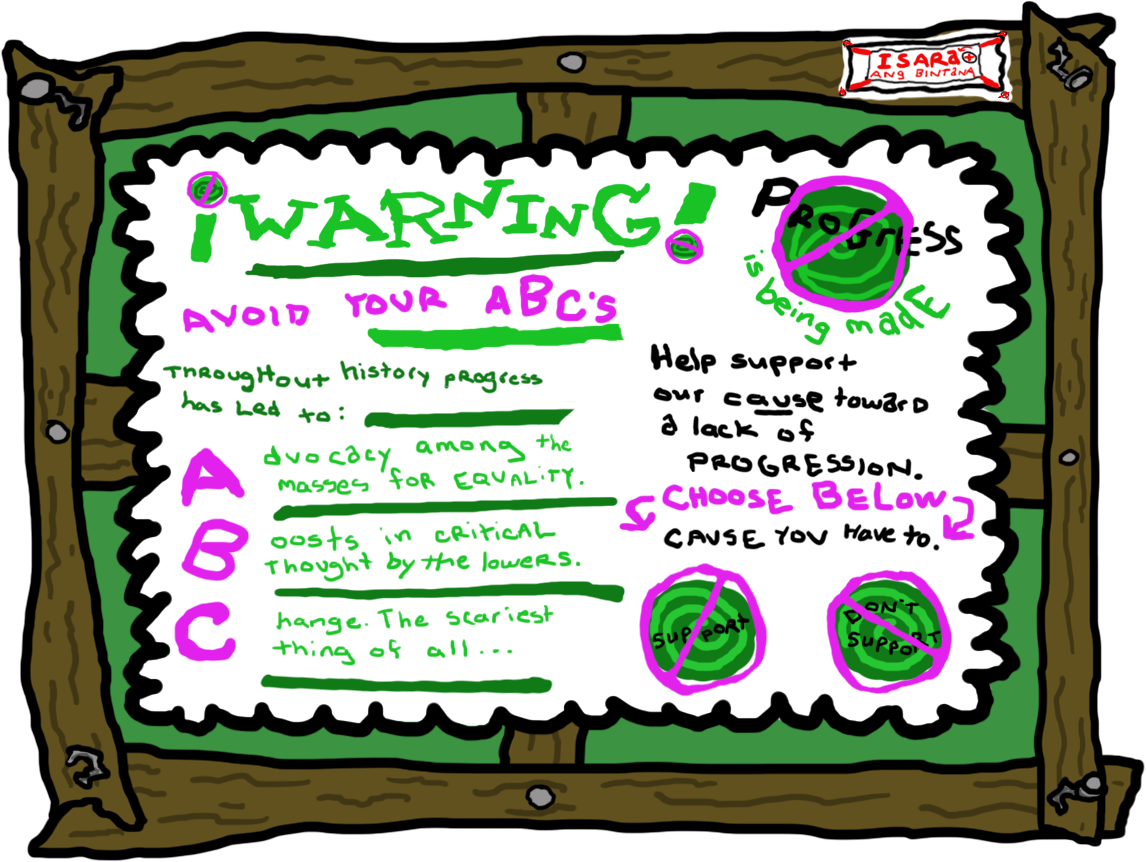 ISARA
ANG BINTANA
¡WARNING!
AVOID YOUR ABC'S
THROUGHOUT history progress
has Led to:
Advocacy among the
masses foR EQUALITY.
Boosts in CRITICAL
Thought by the lowers.
Change. The scariest
thing of all...
PROGRESS
is being madE
Help support
our cause toward
a lack of
PROGRESSION.
CHOOSE BELOW
CAUSE YOU Have to.
SUPPORT
DON'T
SUPPORT